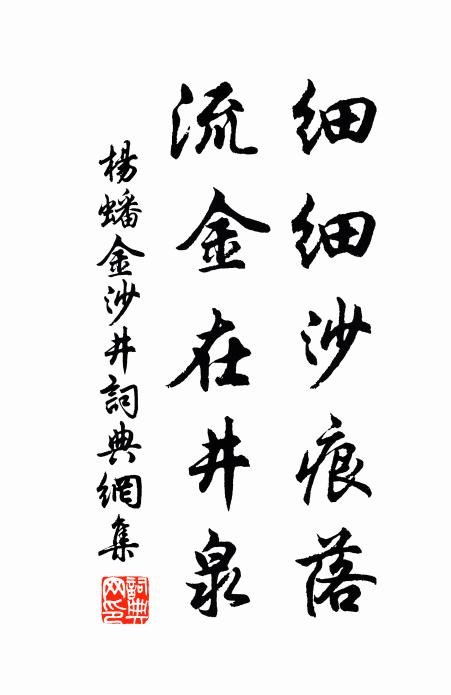 细细沙痕落
流金在井泉
楊蟠金沙井詞典網集
詞典网印